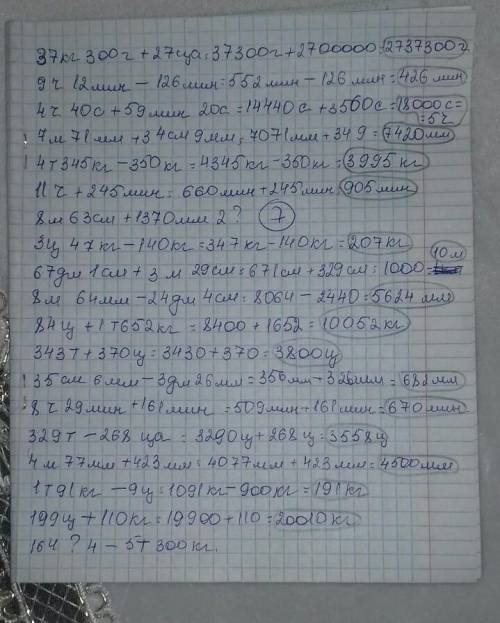 37кг 300г + 27ца = 37300г + 2700000 = 2737300г
9ч 12мин - 126мин = 552мин - 126мин = 426мин
4ч 40с + 59мин 20с = 14440с + 3560с = 18000с = = 5ч
7м 71мм + 34см 9мм = 7071мм + 349 = 7420мм
4т 345кг - 350кг = 4345кг - 350кг = 3995кг
11ч + 245мин = 660мин + 245мин = 905мин
8м 63см + 1370мм 2 ? 7
3ц 47кг - 140кг = 347кг - 140кг = 207кг
67дм 1см + 3м 29см = 671см + 329см = 1000 = 10м
8м 64мм - 24дм 4см = 8064 - 2440 = 5624мм
84ц + 1т652кг = 8400 + 1652 = 10052кг
343т + 370ц = 3430 + 370 = 3800ц
35см 6мм - 3дм 26мм = 356мм - 326мм = 682мм
8ч 29мин + 161мин = 509мин + 161мин = 670мин
329т - 268ца = 3290ц + 268ц = 3558ц
4м 77мм + 423мм = 4077мм + 423мм = 4500мм
1т91кг - 9ц = 1091кг - 900кг = 191кг
199ц + 110кг = 19900 + 110 = 20010кг
164 ? 4 - 5т 300кг.